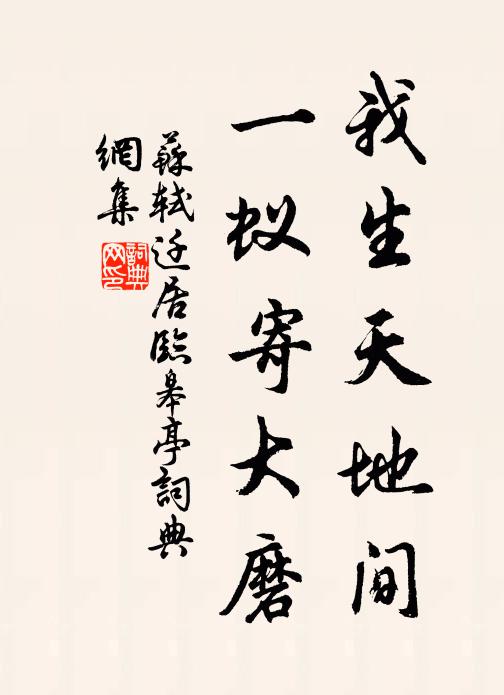 我生天地间
一蚁寄大磨
蘇軾迁居臨皋亭詞典
網集
詞典
网印